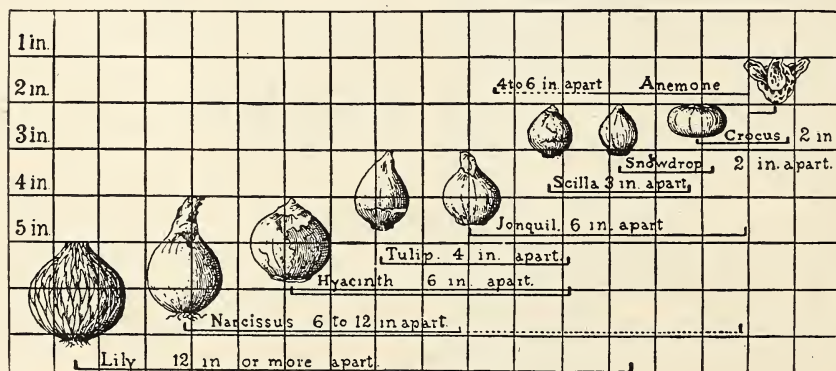 1 in.
2 in.
4 to 6 in. apart Anemone
3 in.
Crocus 2 in
Snowdrop 2 in. apart.
4 in.
Scilla 3 in. apart.
5 in.
Jonquil. 6 in. apart
Tulip. 4 in. apart.
Hyacinth 6 in. apart.
Narcissus 6 to 12 in apart.
Lily 12 in or more apart.